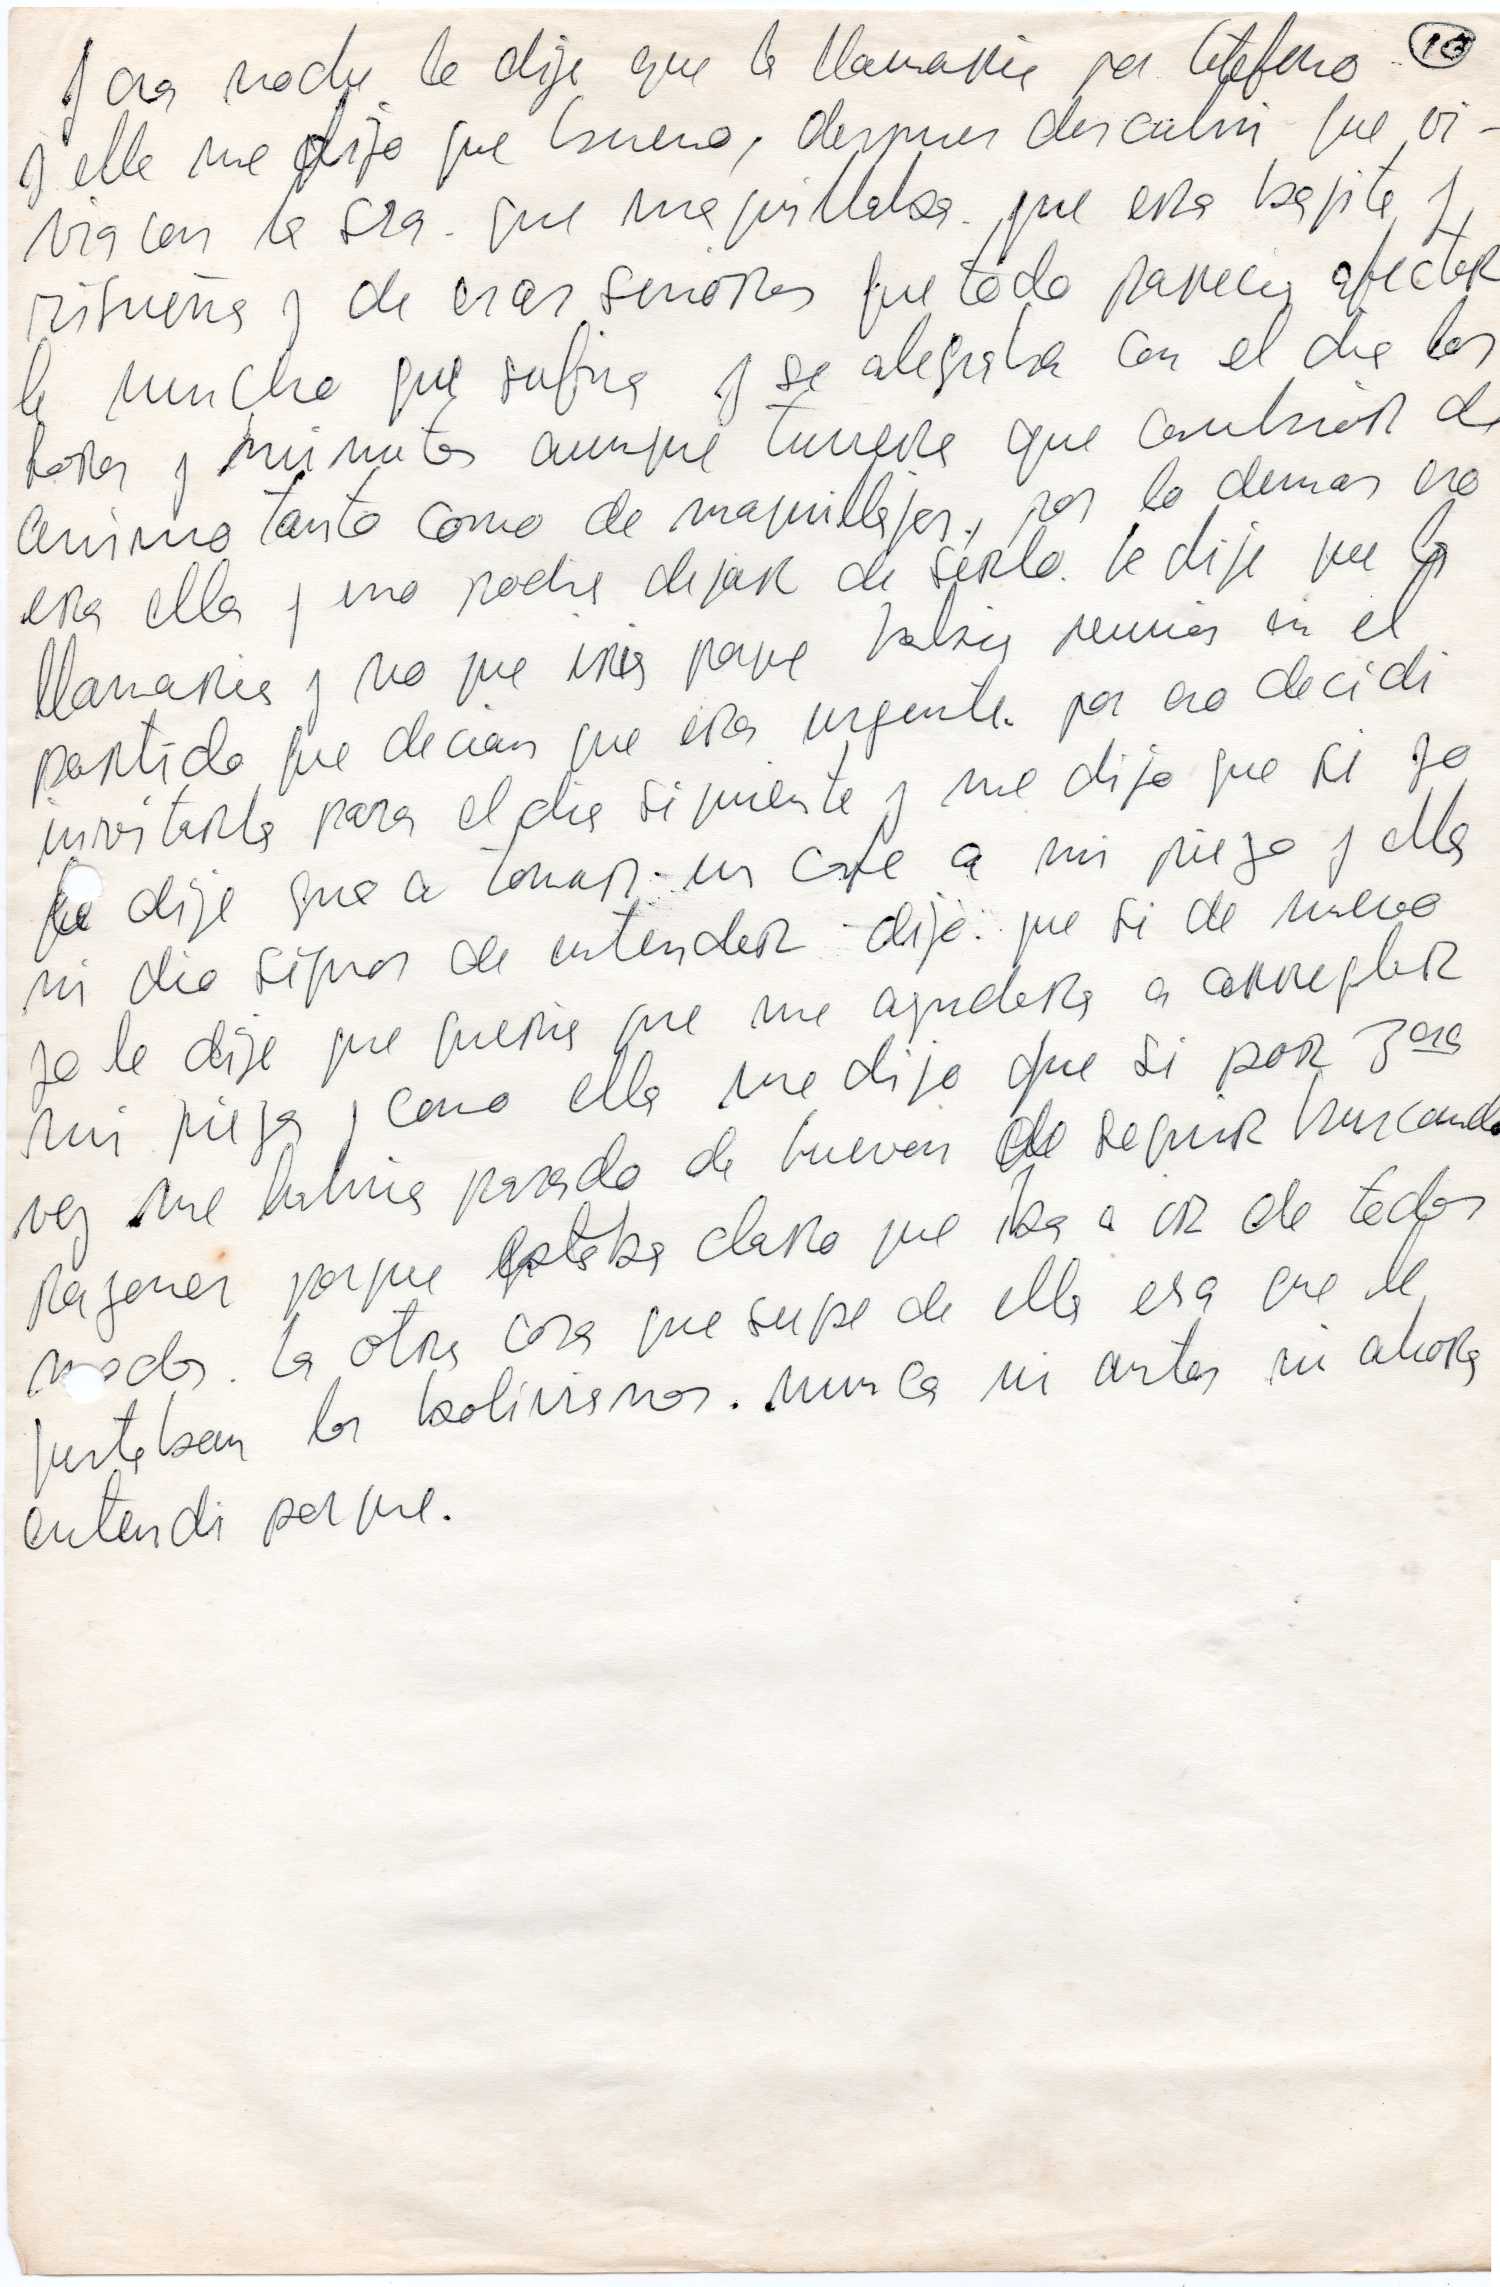 y esa noche le dije que la llamaria por telefono
y ella me dijo que bueno, despues descubri que vi-
via con la sra. que maquillaba. que era bajita y
risueña y de esas señoras que todo parecia afectar
le mucho que sufria y se alegraba con el dia las
horas y minutos aunque tuviera que cambiar de
animo tanto como de maquillajes, por lo demas eso
era ella y no podia dejar de serlo. le dije que la
llamaria y no que iria porque habia reunion en el
partido que decian que era urgente. por eso decidi
invitarla para el dia siguiente y me dijo que si yo
le dije que a tomar un cafe a mi pieza y ella
ni dio signos de entender dijo que si de nuevo
yo le dije que queria que me ayudara a arreglar
mi pieza y como ella me dijo que si por 3era
vez me habria pasado de bueven de seguir buscando
razones porque estaba claro que iba a ir de todos
modos. la otra cosa que supe de ella era que le
gustaban los bolivianos. nunca ni antes ni ahora
entendi porque.